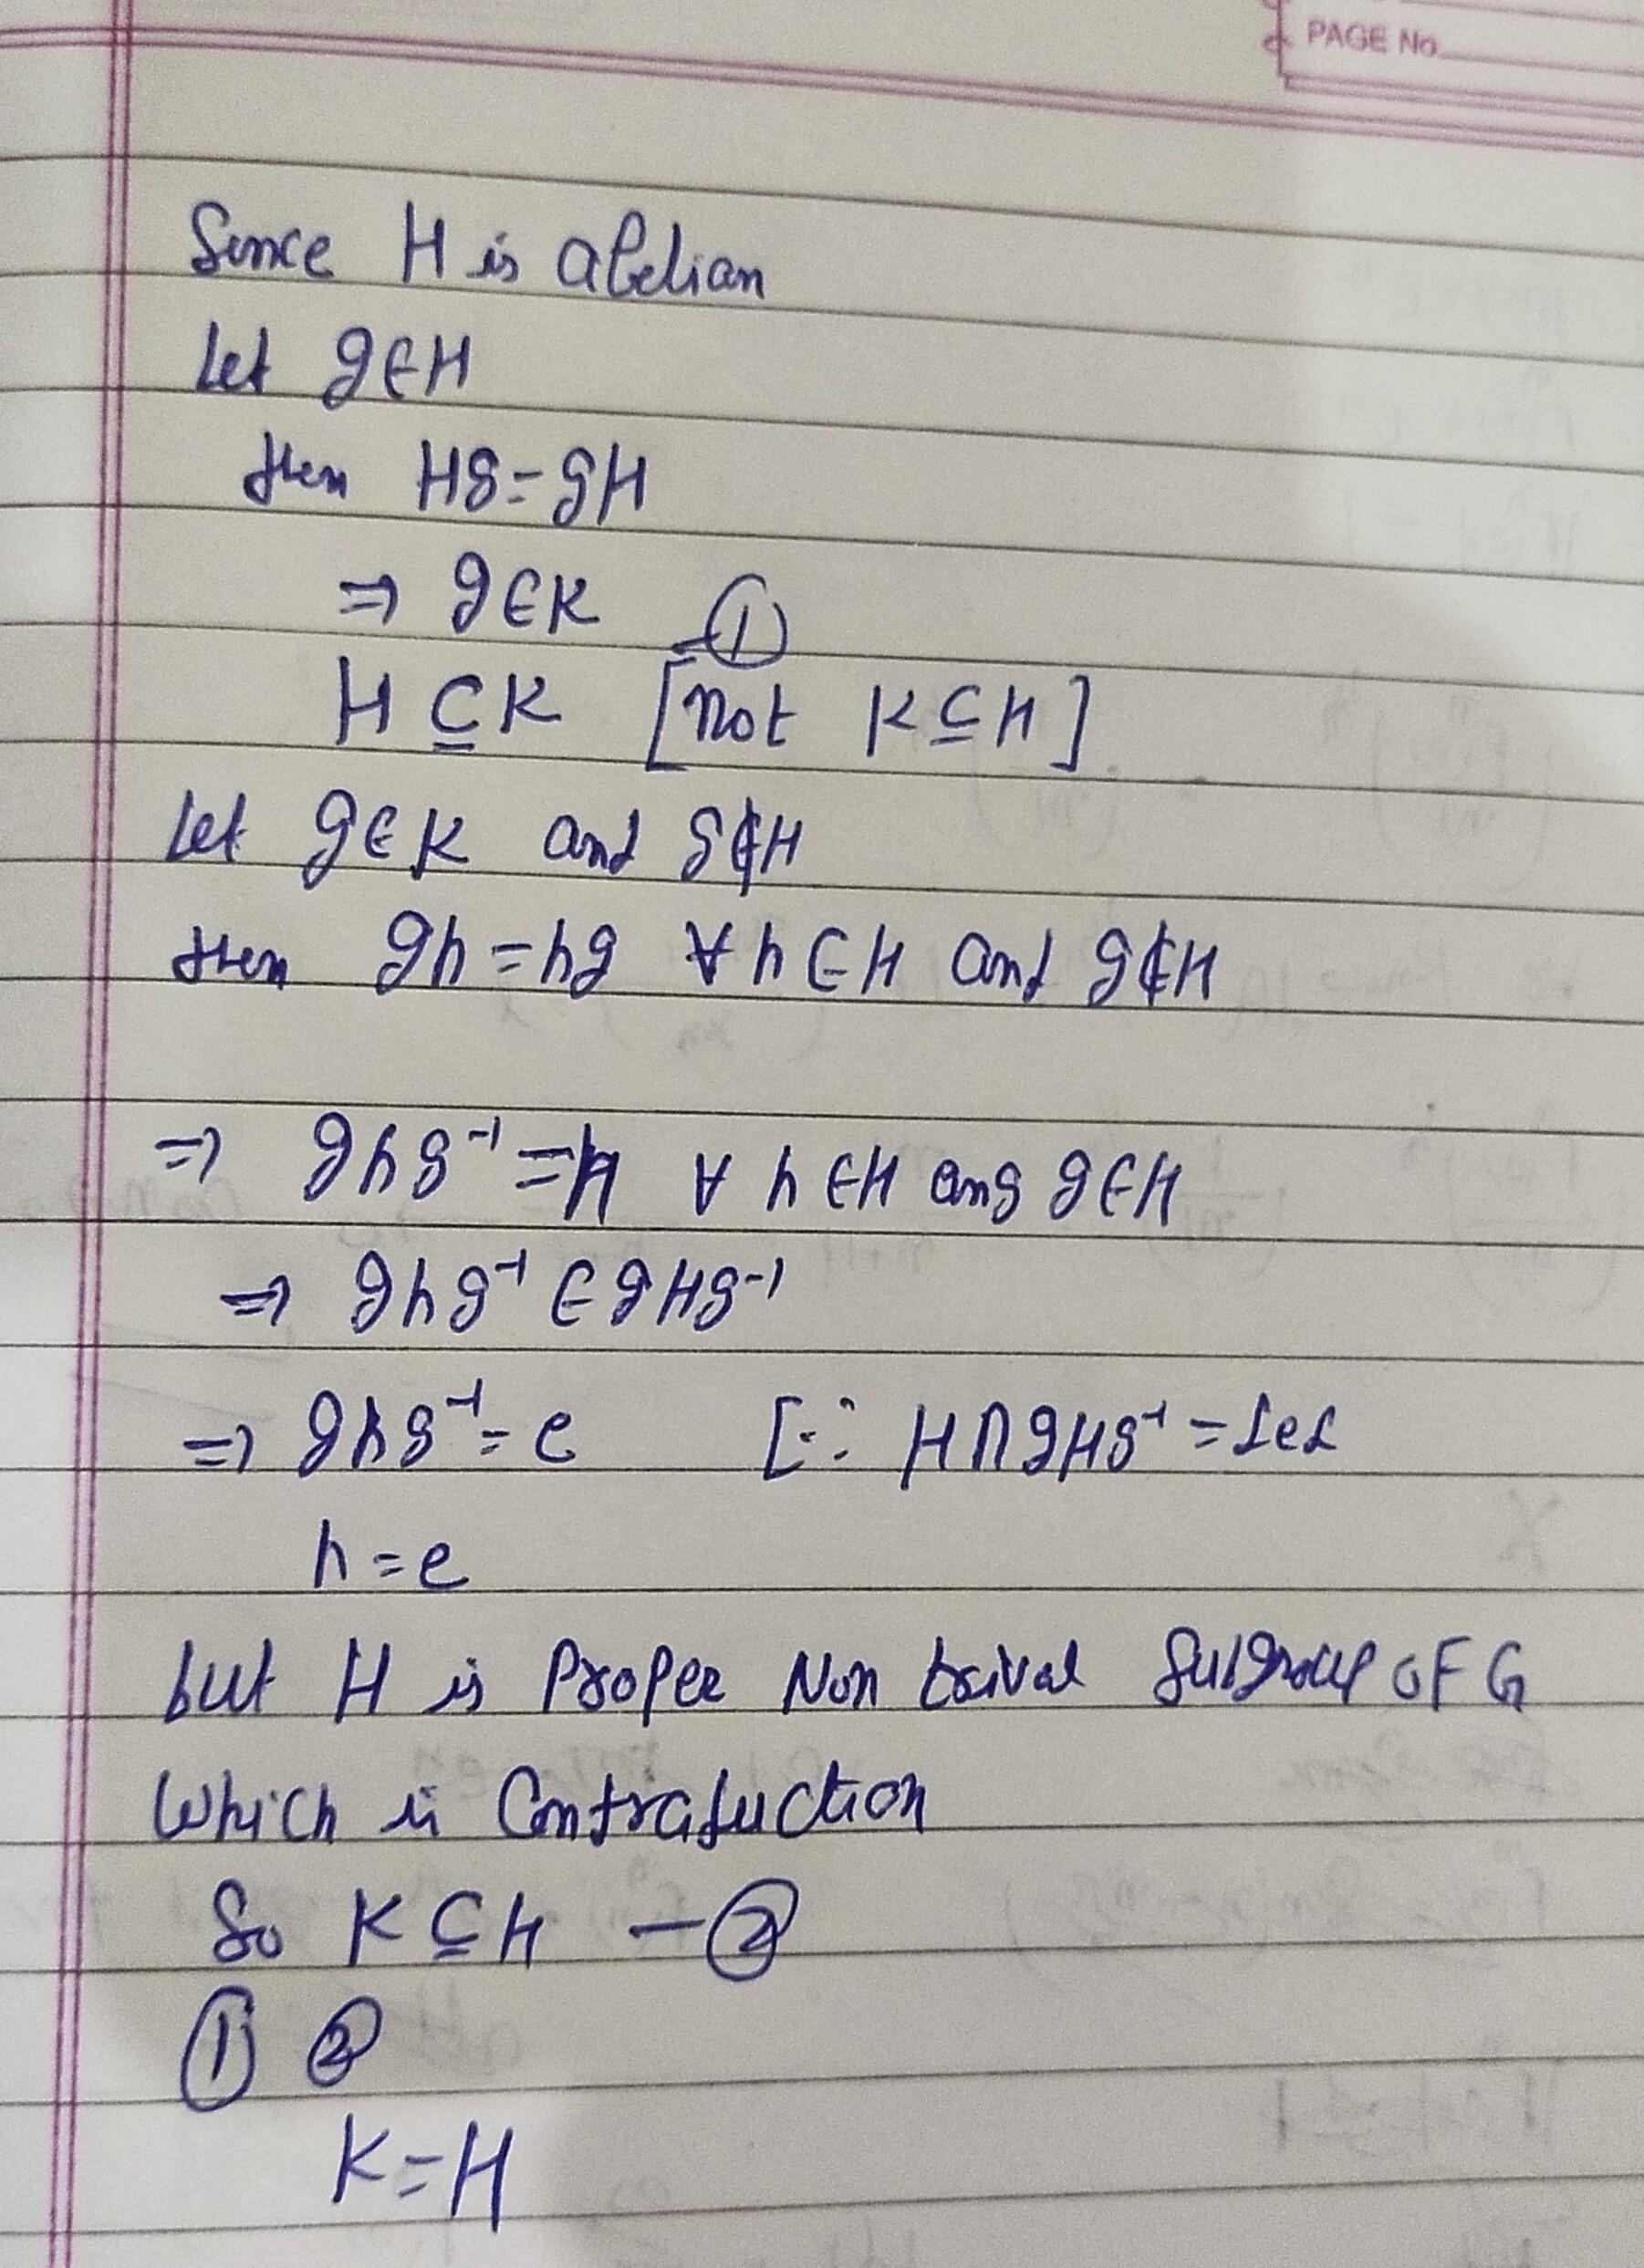 PAGE No.
Since H is abelian
Let g∈H
then Hg=gH
⇒ g∈K —①
H ⊆ K [not K⊆H]
Let g∈K and g∉H
then gh=hg ∀ h∈H and g∉H
⇒ ghg⁻¹=h ∀ h∈H ang g∈H
⇒ ghg⁻¹∈gHg⁻¹
⇒ ghg⁻¹=e [∵ H∩gHg⁻¹={e}
h=e
but H is Proper Non trival Subgroup of G
Which is Contraduction
So K⊆H —②
① ②
K=H